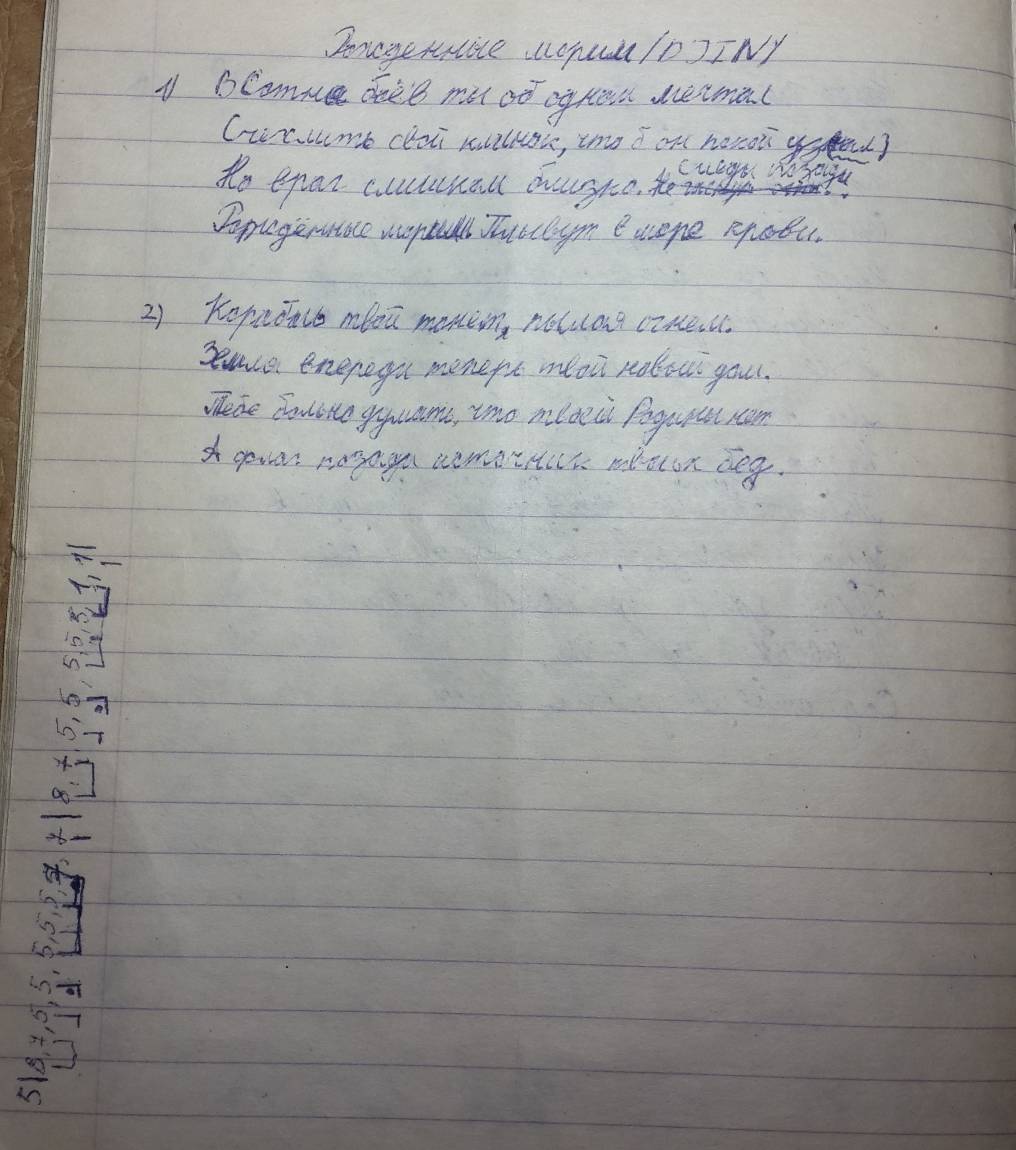 Рожденные морем / DJINY
1) В Сотне боёв ты об одном мечтал
Счехлить свой клинок, что б он покой узнал
Но враг слишком близко. Следы позади.
Рождённые морем Плывут в море крови.
2) Корабль твой тонет, пылая огнем.
Земля впереди теперь твой новый дом.
Тебе больно думать, что твоей Родины нет
А флаг позади источник твоих бед.
5|8,7,5,5,5,5,5,7,7|8,7,5,5,5,5,5,1,1|